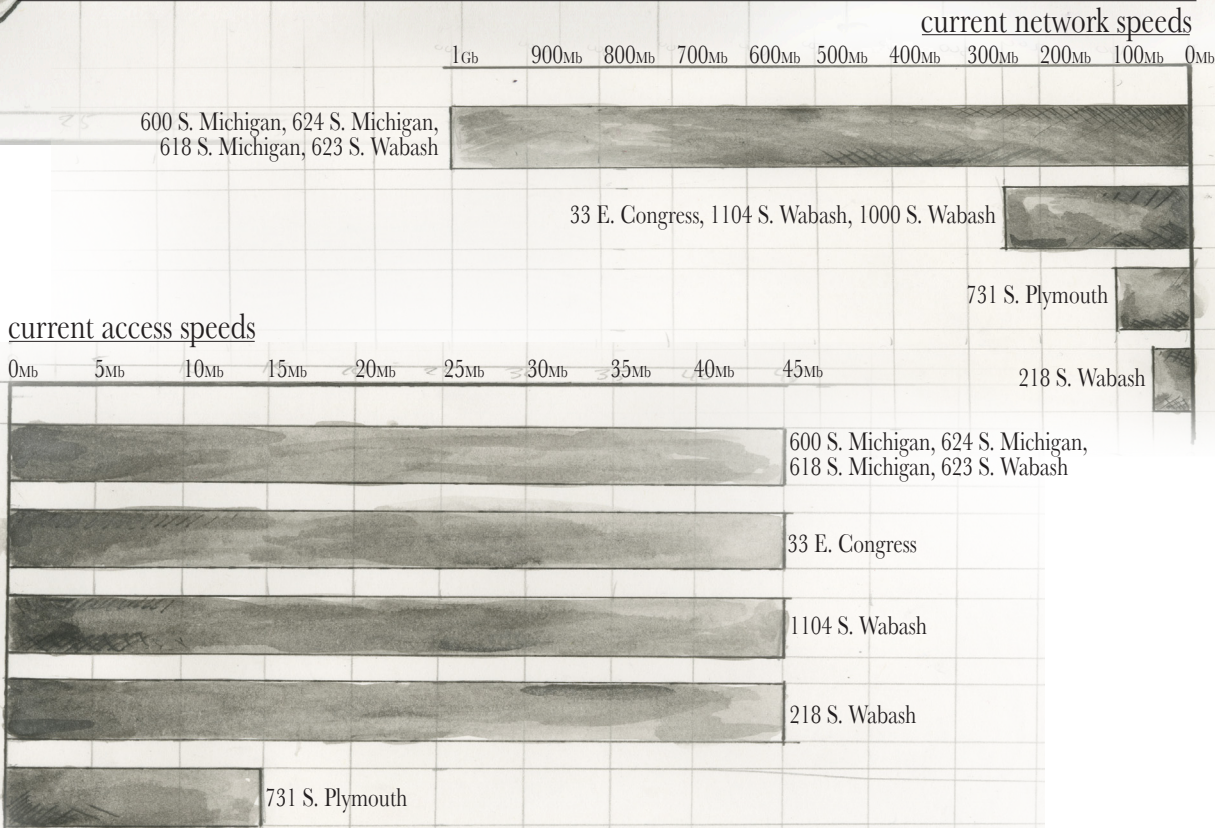 current network speeds
1Gb 900Mb 800Mb 700Mb 600Mb 500Mb 400Mb 300Mb 200Mb 100Mb 0Mb
600 S. Michigan, 624 S. Michigan,
618 S. Michigan, 623 S. Wabash
33 E. Congress, 1104 S. Wabash, 1000 S. Wabash
731 S. Plymouth
218 S. Wabash
current access speeds
0Mb 5Mb 10Mb 15Mb 20Mb 25Mb 30Mb 35Mb 40Mb 45Mb
600 S. Michigan, 624 S. Michigan,
618 S. Michigan, 623 S. Wabash
33 E. Congress
1104 S. Wabash
218 S. Wabash
731 S. Plymouth